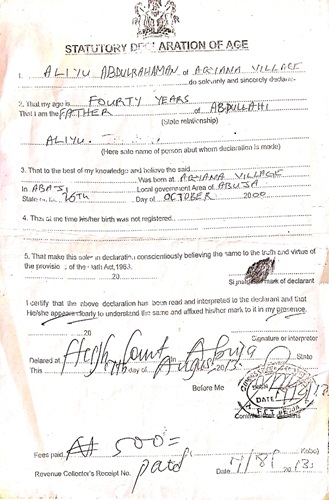 STATUTORY DECLARATION OF AGE
1. ALIYU ABDULRAHAMAN of AGYANA VILLAGE
do solemnly and sincerely declare
2. That my age is FOURTY YEARS
That I am the FATHER of ABDULLAHI
(State relationship)
ALIYU.
(Here sate name of person abut whom declaration is made)
3. That to the best of my knowledge and believe the said
Was born at AGYANA VILLAGE
In ABAJI Local government Area of ABUJA
State 26th Day of OCTOBER 2000
4. That at the time his/her birth was not registered
5. That make this declaration conscientiously believing the same to the truth and virtue of
the provision of the oath Act, 1963.
20
mark of declarant
I certify that the above declaration has been read and interpreted to the declarant and that
He/she appears clearly to understand the same and affixed his/her mark to it in my presence.
20
Signature or interpreter
Delared at High Court in Abuja State
This 7th day of August 2013
Before Me
DATE
Fees paid ₦ 500= Kobo)
Revenue Collector's Receipt No. paid Date 7/8/ 2013